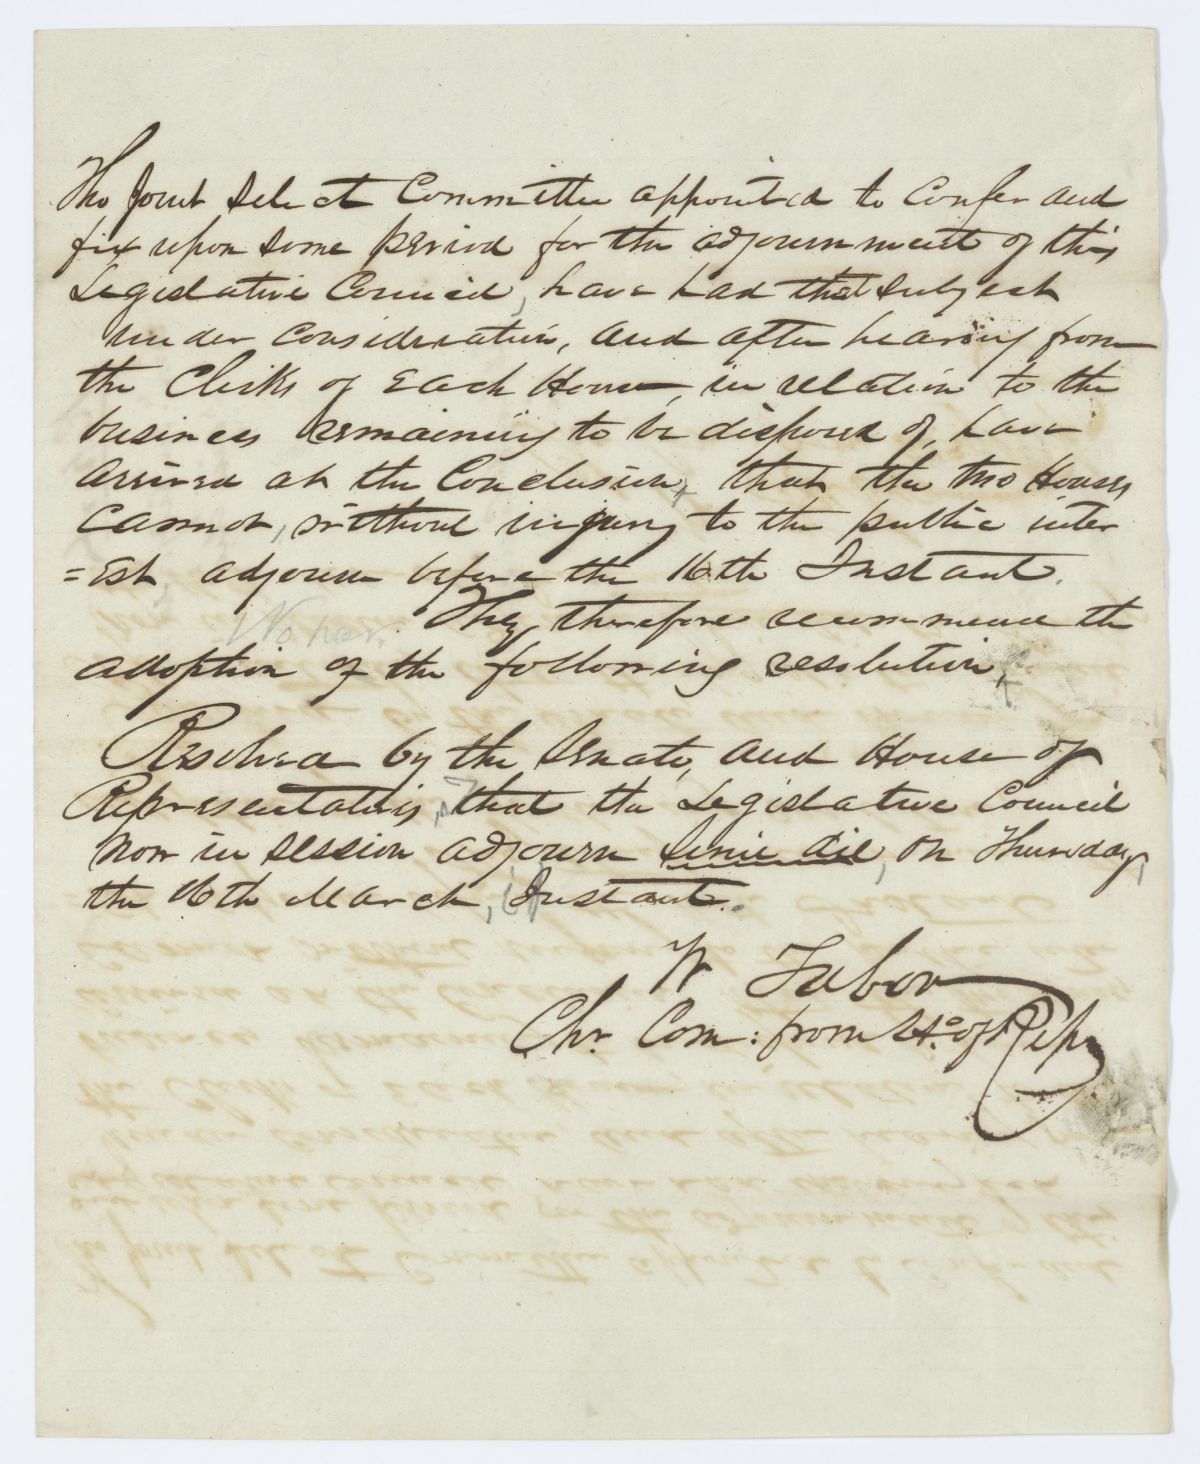 The Joint Select Committee appointed to Confer and
fix upon some period for the adjournment of this
Legislative Council, have had that subject
under consideration, and after hearing from
the Clerks of Each House, in relation to the
business remaining to be disposed of, have
arrived at the Conclusion, that the two Houses
cannot, without injury to the public inter
=est, adjourn before the 16th Instant.
They, therefore recommend the
adoption of the following resolution,
Resolved by the Senate, and House of
Representatives, that the Legislative Council
now in session adjourn Sinie die, on Thursday,
the 16th March, Instant.
W Tabor
Chr. Com: from Ho. of Rep